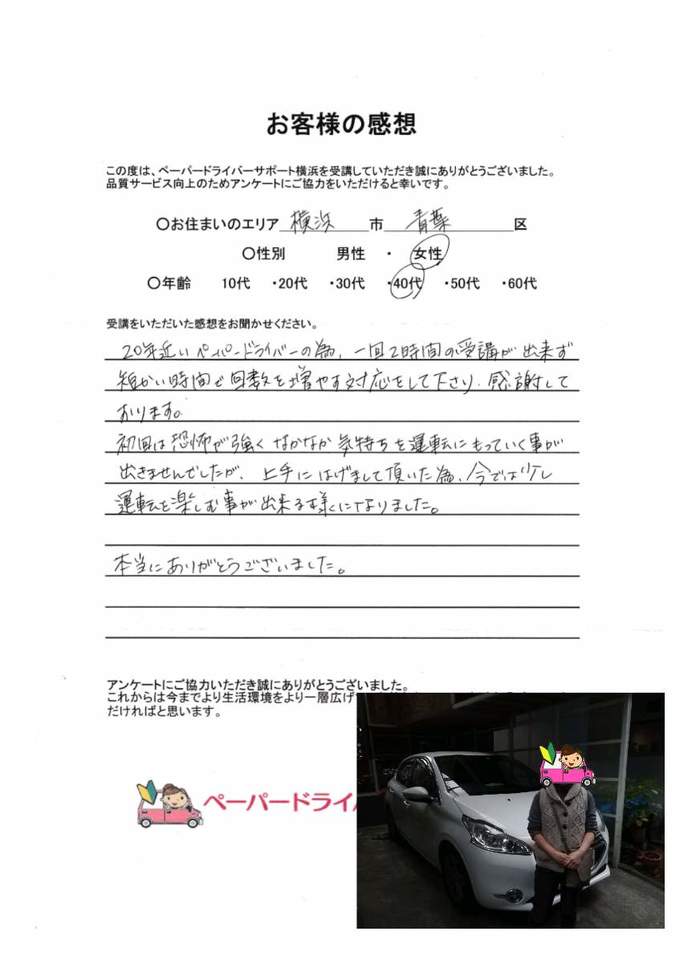 お客様の感想
この度は、ペーパードライバーサポート横浜を受講していただき誠にありがとうございました。
品質サービス向上のためアンケートにご協力をいただけると幸いです。
〇お住まいのエリア 横浜 市 青葉 区
〇性別 男性 ・ 女性
〇年齢 10代 ・20代 ・30代 ・40代 ・50代 ・60代
受講をいただいた感想をお聞かせください。
20年近いペーパードライバーの為、一回2時間の受講が出来ず
短かい時間で回数を増やす対応をして下さり、感謝して
おります。
初回は恐怖が強くなかなか気持ちを運転にもっていく事が
出きませんでしたが、上手にはげまして頂いた為、今では少し
運転を楽しむ事が出来る様になりました。
本当にありがとうございました。
アンケートにご協力いただき誠にありがとうございました。
これからは今までより生活環境をより一層広げ
だければと思います。
ペーパードライバ